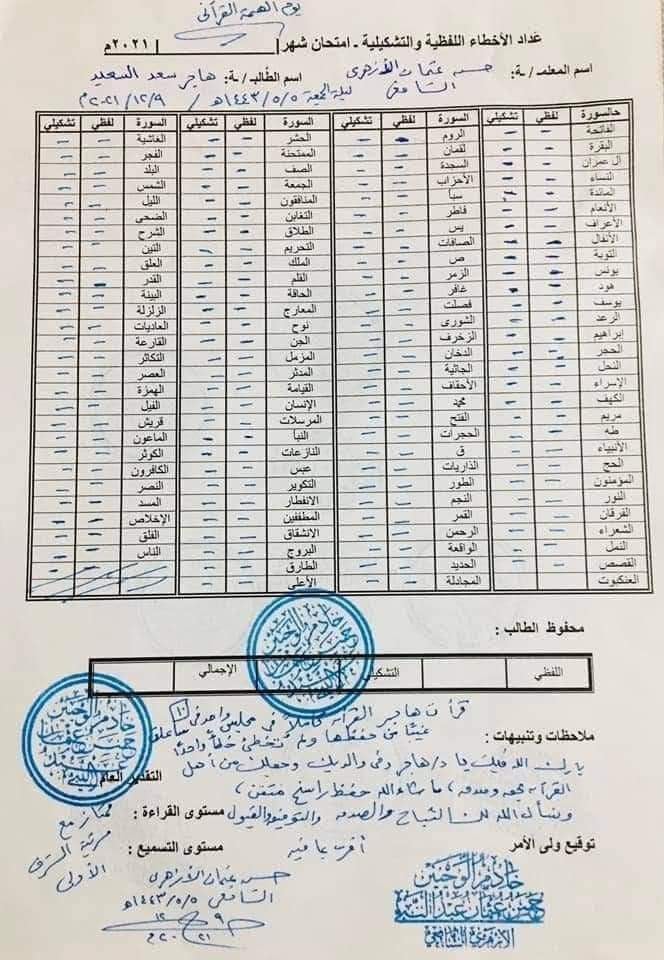 يوم الهمة القرآني
عداد الأخطاء اللفظية والتشكيلية ـ امتحان شهر | | ٢٠٢١م
اسم المعلمـ /ـة: حسن عثمان الأزهري الشافعي اسم الطالبـ /ـة: هاجر سعد السعيد
ليلة الجمعة ١٤٤٣/٥/٥هـ / ٢٠٢١/١٢/٩م
السورة لفظي تشكيلي السورة لفظي تشكيلي السورة لفظي تشكيلي السورة لفظي تشكيلي
الفاتحة – – الروم – – الحشر – – الغاشية – –
البقرة – – لقمان – – الممتحنة – – الفجر – –
آل عمران – – السجدة – – الصف – – البلد – –
النساء – – الأحزاب – – الجمعة – – الشمس – –
المائدة – – سبأ – – المنافقون – – الليل – –
الأنعام – – فاطر – – التغابن – – الضحى – –
الأعراف – – يس – – الطلاق – – الشرح – –
الأنفال – – الصافات – – التحريم – – التين – –
التوبة – – ص – – الملك – – العلق – –
يونس – – الزمر – – القلم – – القدر – –
هود – – غافر – – الحاقة – – البينة – –
يوسف – – فصلت – – المعارج – – الزلزلة – –
الرعد – – الشورى – – نوح – – العاديات – –
إبراهيم – – الزخرف – – الجن – – القارعة – –
الحجر – – الدخان – – المزمل – – التكاثر – –
النحل – – الجاثية – – المدثر – – العصر – –
الإسراء – – الأحقاف – – القيامة – – الهمزة – –
الكهف – – محمد – – الإنسان – – الفيل – –
مريم – – الفتح – – المرسلات – – قريش – –
طه – – الحجرات – – النبأ – – الماعون – –
الأنبياء – – ق – – النازعات – – الكوثر – –
الحج – – الذاريات – – عبس – – الكافرون – –
المؤمنون – – الطور – – التكوير – – النصر – –
النور – – النجم – – الانفطار – – المسد – –
الفرقان – – القمر – – المطففين – – الإخلاص – –
الشعراء – – الرحمن – – الانشقاق – – الفلق – –
النمل – – الواقعة – – البروج – – الناس – –
القصص – – الحديد – – الطارق – –
العنكبوت – – المجادلة – – الأعلى – –
محفوظ الطالب :
اللفظي التشكيلي الإجمالي
قرأت هاجر القرآن كاملاً في مجلس واحد في ١٠ ساعات
ملاحظات وتنبيهات : غيبًا من حفظها ولم تخطئ خطأً واحدًا
بارك الله فيك يا د/ هاجر وفي والديك وجعلك من أهل
التقدير العام
القرآن بحق وصدق، ما شاء الله حفظ راسخ متقن،
ونسأل الله لك الثبات والصدق والتوفيق والقبول
مستوى القراءة : ممتاز مع مرتبة الشرف الأولى
توقيع ولى الأمر
مستوى التسميع :
حسن عثمان الأزهري
الشافعي ١٤٤٣/٥/٥هـ
٩ ١٢ ٢٠٢١م
خادم الوحيين
حسن عثمان عبد النبي
الأزهري الشافعي